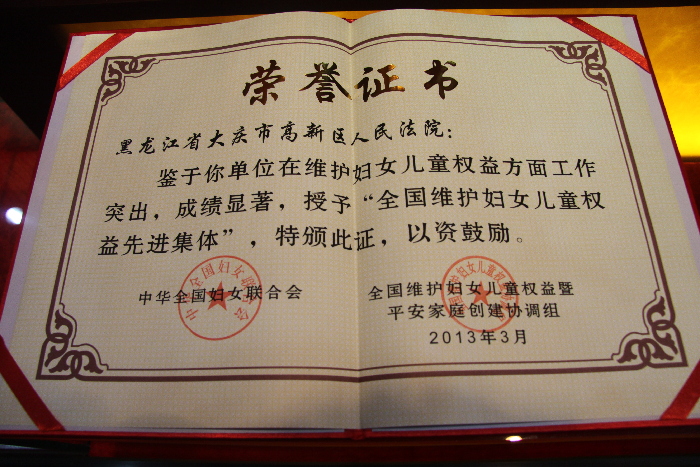 荣誉证书
黑龙江省大庆市高新区人民法院：
鉴于你单位在维护妇女儿童权益方面工作
突出，成绩显著，授予“全国维护妇女儿童权
益先进集体”，特颁此证，以资鼓励。
中华全国妇女联合会
全国维护妇女儿童权益暨
平安家庭创建协调组
2013年3月
中华全国妇女联合会